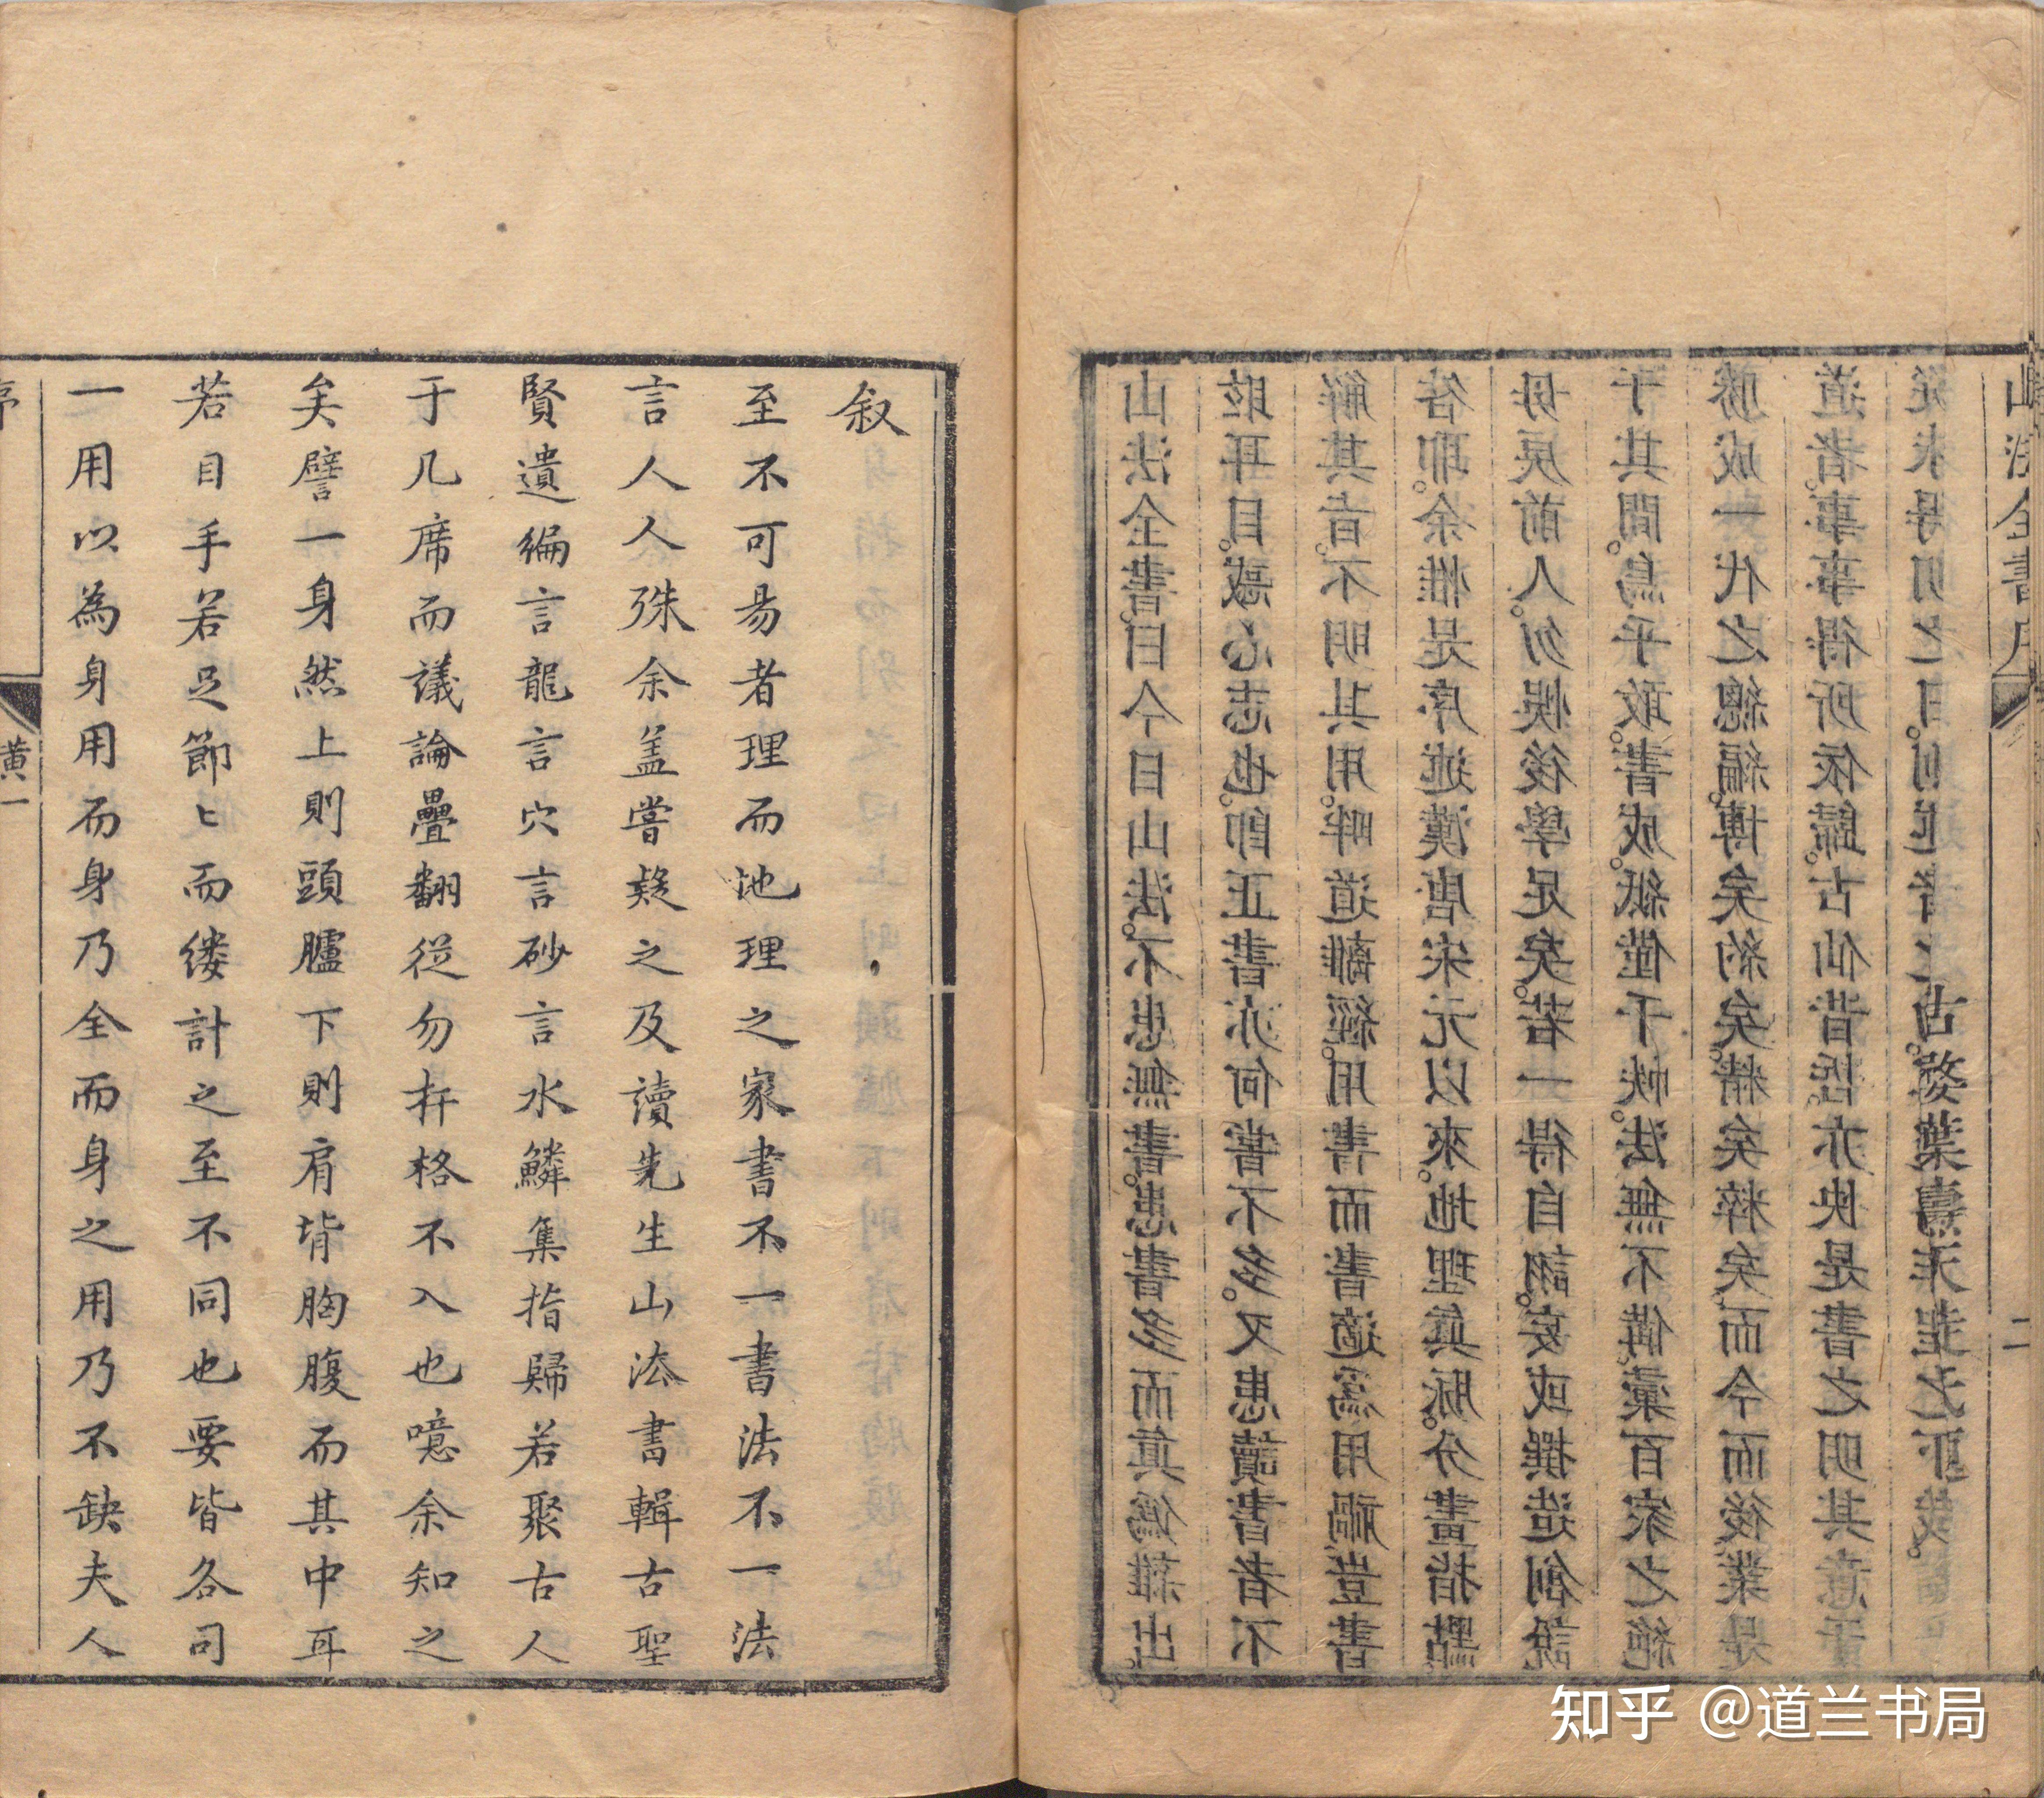 山法全書
二
山法全書。曰今日山法。不患無書。患書多而眞僞雜出。
眩耳目。惑心志也。卽正書亦何嘗不多。又患讀書者不
解其旨。不明其用。畔道離經。用書而書適爲用禍豈書
咎耶。余惟是序述漢唐宋元以來。地理眞脉。分畫指點
毋戾前人。勿悞後學足矣。若一得自詡。妄或撰造創說
于其間。烏乎敢。書成。紙僅千帙。法無不備彙百家之絶
勝成一代之總編。博矣約矣。精矣粹矣。而今而後業是
道者。事事得所依歸。古仙昔哲。亦快是書之明其意于
叙
至不可易者理而地理之家書不一書法不一法
言人人殊余盖嘗疑之及讀先生山法書輯古聖
賢遺編言龍言穴言砂言水鱗集指歸若聚古人
于几席而議論疊翻從勿扞格不入也噫余知之
矣譬一身然上則頭臚下則肩背胸腹而其中耳
若目手若足節〻而縷計之至不同也要皆各司
一用以為身用而身乃全而身之用乃不缺夫人
序
黄一
知乎 @道兰书局